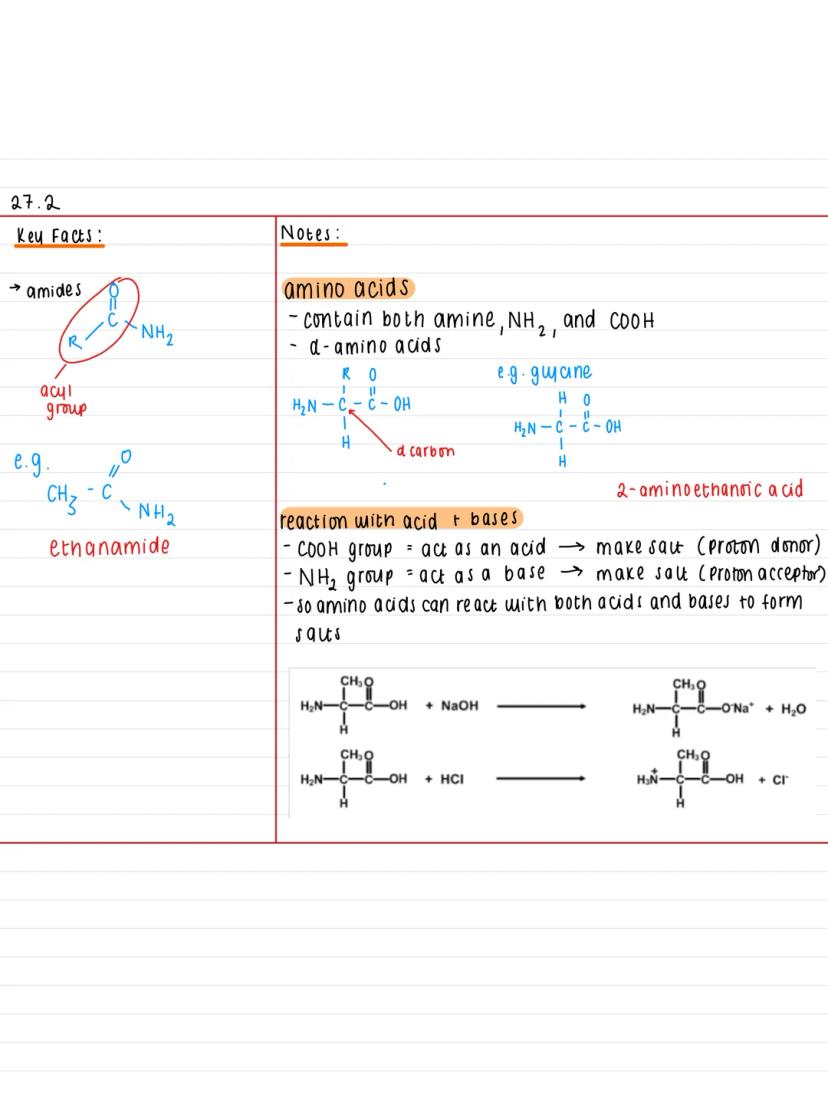 27.2
Key Facts:
→ amides
O
||
C
R
NH₂
acyl
group
e.g.
O
CH₃ - C
NH₂
ethanamide
Notes:
amino acids
- contain both amine, NH₂, and COOH
- α-amino acids
R O
H₂N - C - C - OH
H
α carbon
e.g. glycine
H O
H₂N - C - C - OH
H
2-aminoethanoic acid
reaction with acid + bases
- COOH group = act as an acid → make salt (proton donor)
- NH₂ group = act as a base → make salt (proton acceptor)
- so amino acids can react with both acids and bases to form
salts
CH₃ O
H₂N—C—C—OH + NaOH ⟶ H₂N—C—C—O⁻Na⁺ + H₂O
H
CH₃ O
H₂N—C—C—OH + HCl ⟶ H₃N⁺—C—C—OH + Cl⁻
H